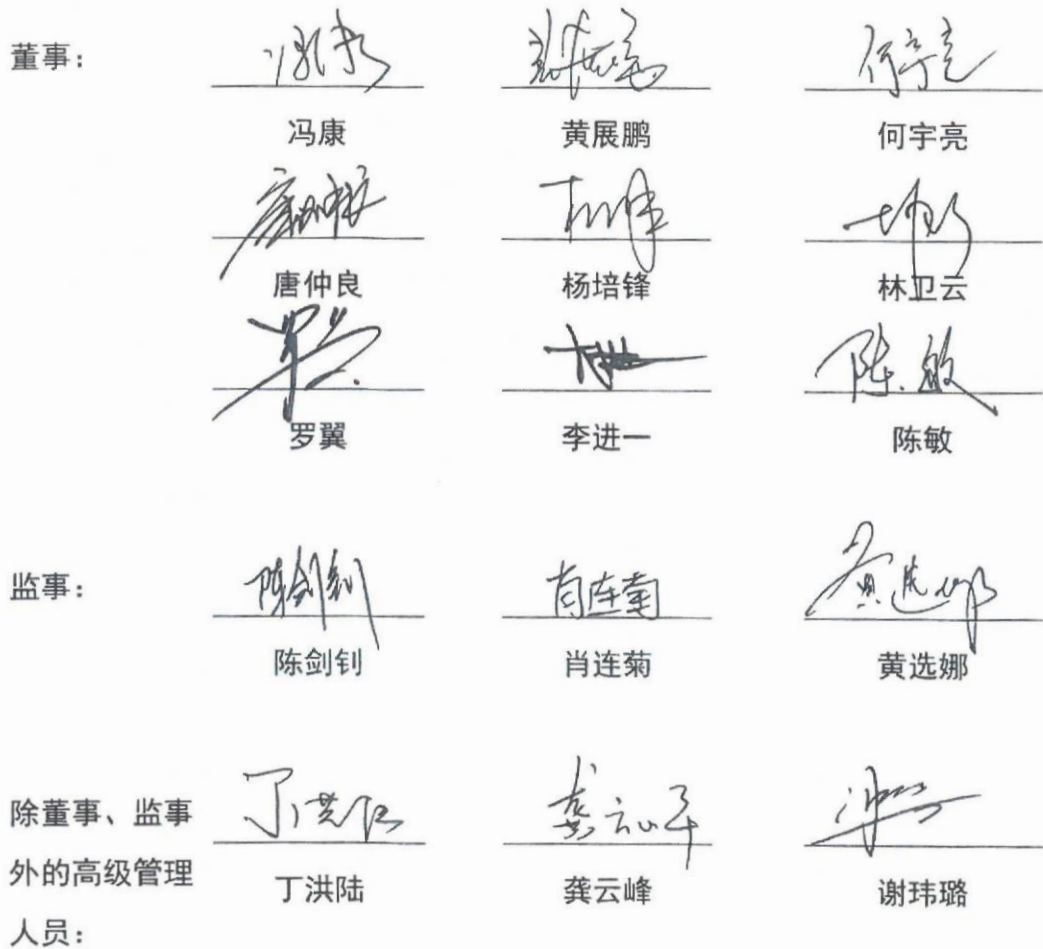 董事：
冯康 黄展鹏 何宇亮
唐仲良 杨培锋 林卫云
罗翼 李进一 陈敏
监事：
陈剑钊 肖连菊 黄选娜
除董事、监事
外的高级管理
人员：
丁洪陆 龚云峰 谢玮璐